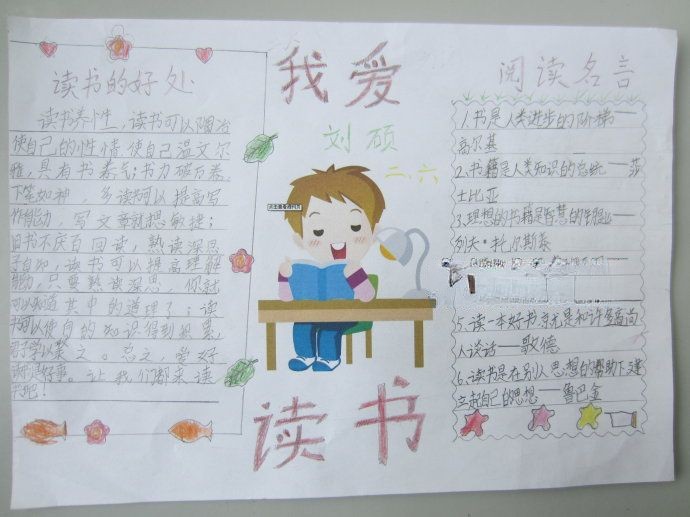 我爱
刘硕
二、六
读书
读书的好处
读书养性,读书可以陶冶
使自己的性情,使自己温文尔
雅,具有书卷气;书力破万卷,
下笔如神,多读可以提高写
作能力,写文章就想敏捷;
旧书不庆百回读,熟读深思
子自知,读书可以提高理解
能力,只要熟读深思,你就
可以知道其中的道理了;读
书可以使自的知识得到积累,
君子学以聚之。总之,爱好
读书是好事。让我们都来读
书吧!
阅读名言
1.书是人类进步的阶梯——
高尔基
2.书籍是人类知识的总统——莎
士比亚
3.理想的书籍是智慧的钥匙——
列夫·托尔斯泰
5.读一本好书,就是和许多高尚
人谈话——歌德
6.读书是在别人思想的帮助下,建
立起自己的思想——鲁巴金